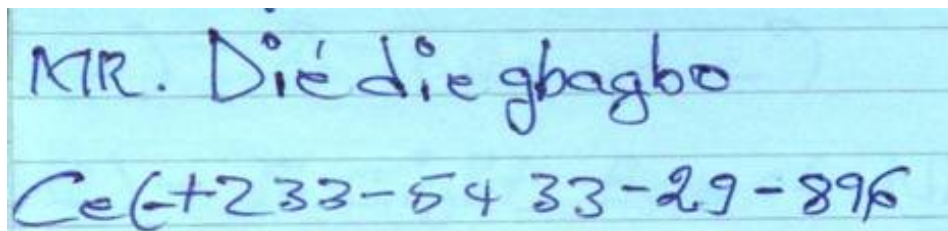 MR. Diédie gbagbo
Cel-+233-5433-29-896